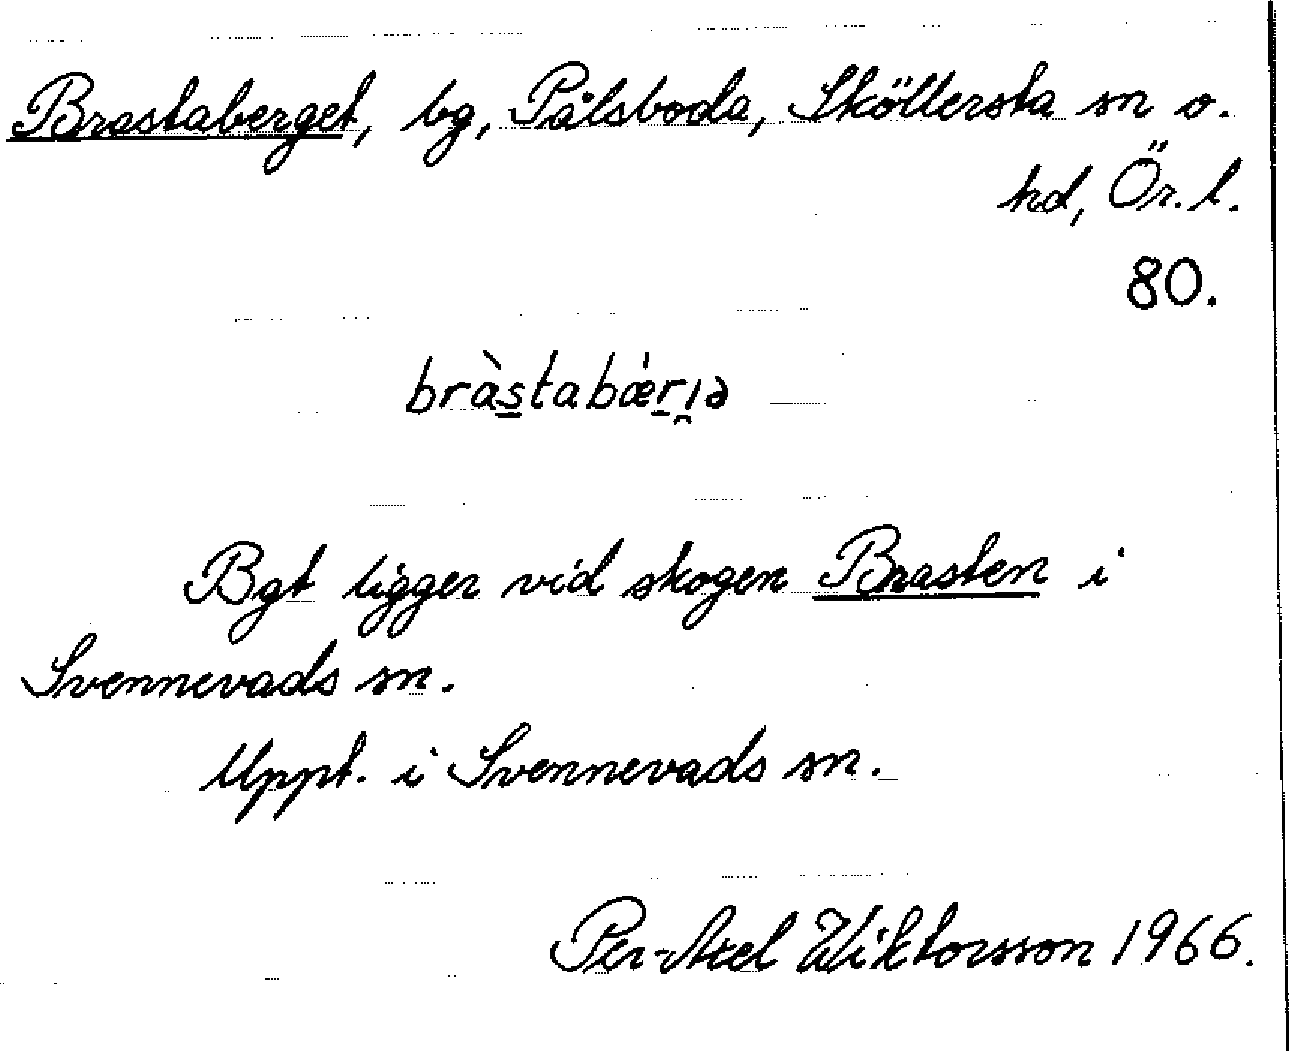 Brastaberget, bg, Pålsboda, Sköllersta sn o.
hd, Ör. l.
80.
bràs̲tabǽr̲ı̯ə
Bgt ligger vid skogen Brasten i
Svennevads sn.
Uppt. i Svennevads sn.
Per-Axel Wiktorsson 1966.